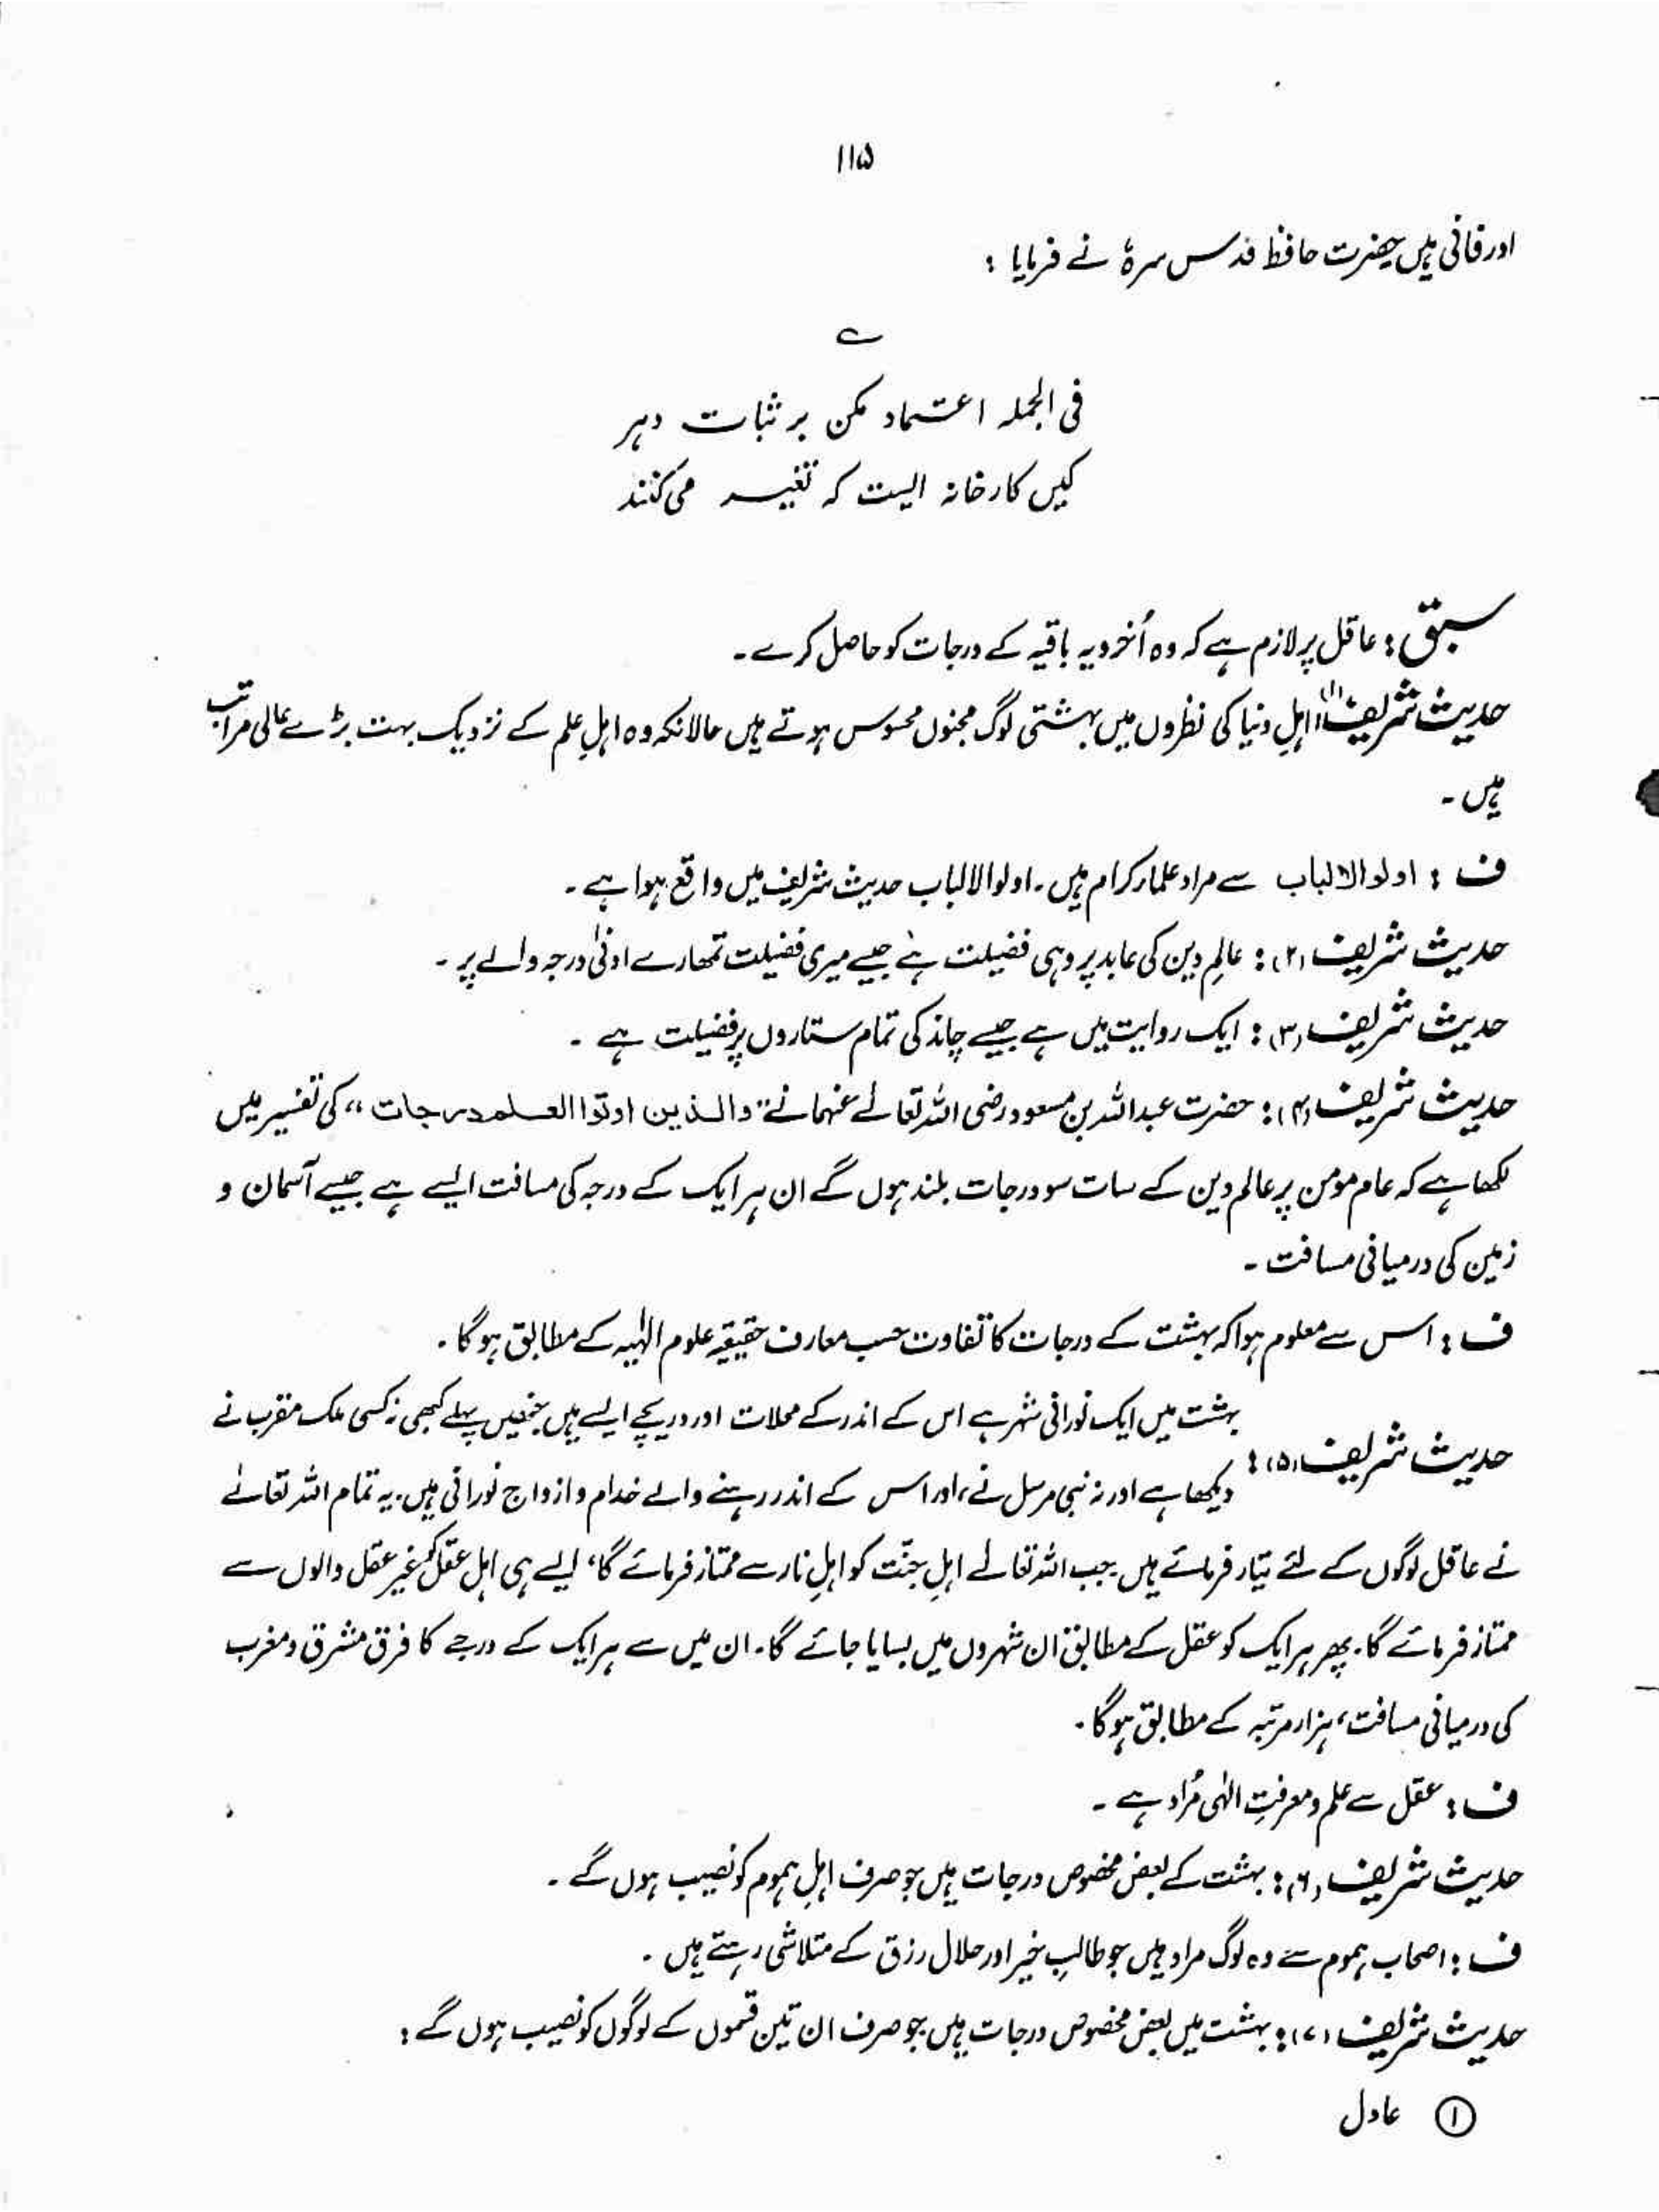 ۱۱۵
اور فانی ہیں حضرت حافظ قدس سرہٗ نے فرمایا :
؎
فی الجملہ اعتماد مکن بر ثبات دہر
کیں کارخانہ ایست کہ تغیر می کنند
سبق : عاقل پر لازم ہے کہ وہ اُخرویہ باقیہ کے درجات کو حاصل کرے ۔
حدیث شریف (۱) : اہلِ دنیا کی نظروں میں بہشتی لوگ مجنوں محسوس ہوتے ہیں حالانکہ وہ اہلِ علم کے نزدیک بہت بڑے عالی مراتب
ہیں ۔
ف : اولوالالباب سے مراد علمار کرام ہیں ۔ اولوا الالباب حدیث شریف میں واقع ہوا ہے ۔
حدیث شریف (۲) : عالمِ دین کی عابد پر وہی فضیلت ہے جیسے میری فضیلت تمھارے ادنیٰ درجہ والے پر ۔
حدیث شریف (۳) : ایک روایت میں ہے جیسے چاند کی تمام ستاروں پر فضیلت ہے ۔
حدیث شریف (۴) : حضرت عبداللہ بن مسعود رضی اللہ تعالےٰ عنہما نے "والذین اوتوا العلم درجات" کی تفسیر میں
لکھا ہے کہ عام مومن پر عالم دین کے سات سو درجات بلند ہوں گے ان ہر ایک کے درجہ کی مسافت ایسے ہے جیسے آسمان و
زمین کی درمیانی مسافت ۔
ف : اس سے معلوم ہوا کہ بہشت کے درجات کا تفاوت حسب معارف حقیقیہ علوم الٰہیہ کے مطابق ہوگا ۔
بہشت میں ایک نورانی شہر ہے اس کے اندر کے محلات اور دریچے ایسے ہیں جنھیں پہلے کبھی نہ کسی ملک مقرب نے
حدیث شریف (۵) : دیکھا ہے اور نہ نبی مرسل نے ، اور اس کے اندر رہنے والے خدام و ازواج نورانی ہیں ۔ یہ تمام اللہ تعالےٰ
نے عاقل لوگوں کے لئے تیار فرمائے ہیں جب اللہ تعالےٰ اہلِ جنّت کو اہلِ نار سے ممتاز فرمائے گا ، ایسے ہی اہل عقل کو غیر عقل والوں سے
ممتاز فرمائے گا ۔ پھر ہر ایک کو عقل کے مطابق ان شہروں میں بسایا جائے گا ۔ ان میں سے ہر ایک کے درجے کا فرق مشرق و مغرب
کی درمیانی مسافت ، ہزار مرتبہ کے مطابق ہوگا ۔
ف : عقل سے علم و معرفتِ الٰہی مُراد ہے ۔
حدیث شریف (۶) : بہشت کے بعض مخصوص درجات ہیں جو صرف اہلِ ہموم کو نصیب ہوں گے ۔
ف : اصحاب ہموم سے وہ لوگ مراد ہیں جو طالبِ خیر اور حلال رزق کے متلاشی رہتے ہیں ۔
حدیث شریف (۷) : بہشت میں بعض مخصوص درجات ہیں جو صرف ان تین قسموں کے لوگوں کو نصیب ہوں گے :
① عادل